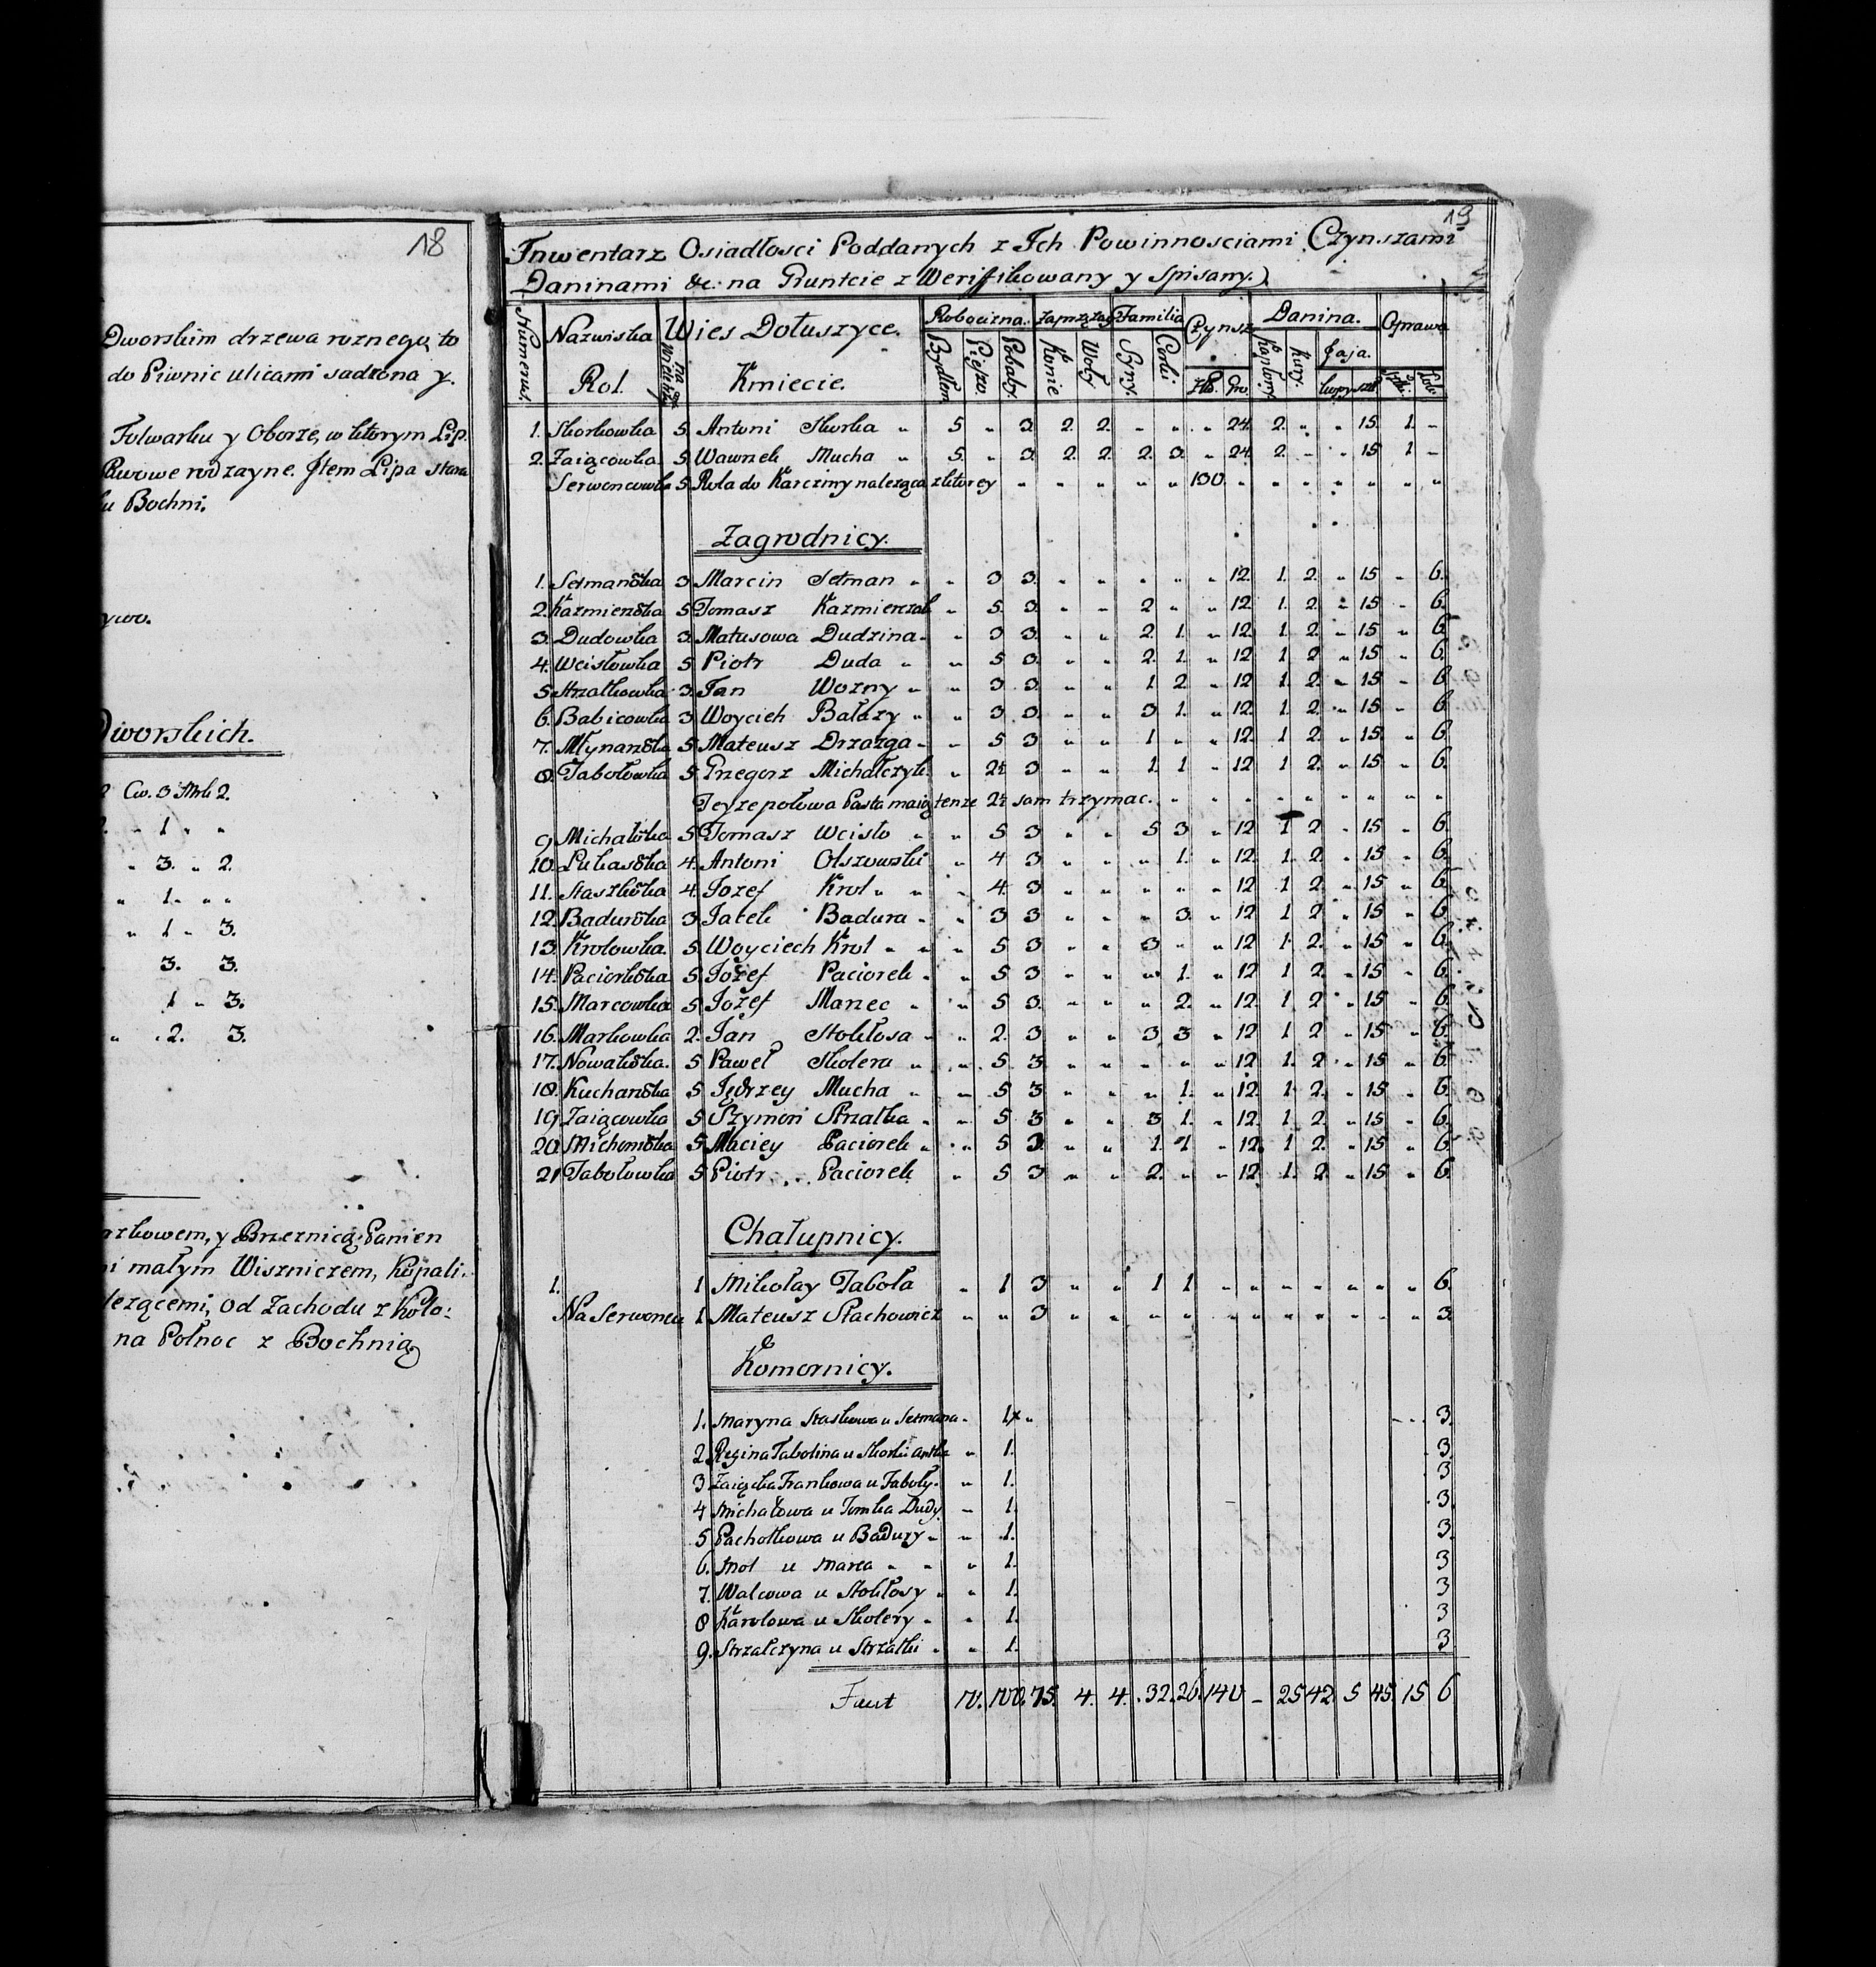 18
Dworskim drzewa roznego, to
do Piwnic ulicami sadzona y.
Folwarku y Oborze, w ktorym Lip.
rodzayne. Jtem Lipa stara
Bochni.
Dworskich.
Cw. 3 Mrk 2.
" 1 " "
" 3. " 2.
" 1. " "
" 1 " 3.
3. 3.
1 " 3.
" 2. 3.
y Brzeznicą Panien
i małym Wiszniczem, Kopali.
lezącemi, od Zachodu z Kolo:
na Połnoc z Bochnią
19
Inwentarz Osiadłosci Poddanych z Ich Powinnosciami Czynszami
Daninami &c. na Gruncie z Weryfikowany y Spisany.)
Numerus. Nazwiska Rol. Wies Dołuszyce. Kmiecie. Robocizna. Zaprząg Familia Czynsz Danina. Oprawa
Bydłem Pieszo. Pobaby. Konie Woły Syny. Corki Złł. Gro. Kapłony. Kury. Jaja. kopy szt
1. Skorkowka 5. Antoni Skorka " 5 " 3 2. 2. " " " 24. 2. " " 15. 1. "
2. Zaiącowka 5 Wawrzek Mucha " 5. " 3. 2. 2. 2. 3. " 24. 2. " " 15 1. "
Serwoncowka 5 Rola do Karczmy naleząca z ktorey " " " " " 130. " " " " " " "
Zagrodnicy.
1. Setmańska 3. Marcin Setman " " 3 3. " " " " " 12. 1. 2. " 15 " 6.
2. Kazmierska 5 Tomasz Kazmierczak " 5. 3. " " 2 " " 12. 1. 2. " 15 " 6.
3. Dudowka 3. Matusowa Dudzina " " 3 3. " " 2. 1. " 12. 1. 2. " 15 " 6.
4. Wcisłowka 5. Piotr Duda " " 5 3. " " 2. 1. " 12 1 2 " 15 " 6.
5. Strzałkowka 3. Jan Wozny " " 3 3. " " 1 2 " 12 1. 2. " 15 " 6
6. Babicowka 3 Woycieh Bałazy " " 3 3. " " 3 1. " 12. 1. 2. " 15 " 6
7. Młynarska 5. Mateusz Drzazga " " 5 3 " " 1 " " 12. 1 2. " 15. " 6
8. Tabołowka 5. Grzegorz Michalczyk. " 2½ 3 " " 1. 1 " 12 1 2. " 15 " 6.
Teyze połowa Pasta maią tenze 2½ sam trzymac. " " " " " " " " "
9. Michalska 5 Tomasz Wcisło " " 5 3 " " 5 3 " 12 1 2 " 15 " 6.
10. Lukaska 4. Antoni Olszowski " 4 3 " " " 1. " 12. 1. 2. " 15 " 6.
11. Staszkska 4. Jozef Krol " " " 4. 3 " " " " " 12 1 2. " 15 " 6
12. Badurska 3 Jacek Badura " " 3 3 " " " 3. " 12 1 2 " 15 " 6.
13. Krolowka. 5. Woyciech Krol " " " 5 3 " " 3 " " 12 1. 2. " 15 " 6.
14. Paciorkska 5. Jozef Paciorek " " 5 3 " " " 1. " 12 1 2. " 15 " 6.
15. Marcowka 5 Jozef Marzec " " 5 3. " " " 2. " 12. 1. 2 " 15 " 6.
16. Markowka 2. Jan Stokłosa " " 2. 3 " " 3 3 " 12 1 2 " 15 " 6.
17. Nowakska. 5 Paweł Skolera " " 5. 3 " " " " " 12 1. 2 " 15 " 6
18. Kucharska 5 Jędrzey Mucha " " 5 3 " " " 1. " 12. 1. 2. " 15 " 6.
19. Zaiącowka 5 Szymon Strzałka " " 5 3 " " 3 1. " 12. 1. 2. " 15 " 6.
20. Michonska 5. Maciey Paciorek " " 5 3. " " 1. 1 " 12. 1 2. " 15 " 6.
21 Tabołowka 5 Piotr Paciorek " 5 3 " " 2. " " 12. 1. 2. " 15 " 6.
Chałupnicy.
1. 1 Mikołay Taboła " 1 3 " " 1 1 " " " " " " " 6.
Na Serwoncu 1. Mateusz Stachowicz " " 3 " " " " " " " " " " " 3.
Komornicy.
1. Maryna Staskowa u Setmana " 1. " 3.
2. Regina Tabolina u Skorki " 1. 3
3 Zaiącka Frankowa u Taboły. " 1. 3
4 Michałowa u Tomka Dudy " 1. 3.
5 Pachołkowa u Badury " " 1. 3.
6. Mol u Marca " " " 1. 3
7. Walcowa u Stokłosy " " 1. 3
8 Karolowa u Skolery " " 1. 3
9. Strzalczyna u Strzałki " " 1. 3
Facit 10. 100. 75. 4. 4. 32. 26. 140 - 25 42. 5 45. 15 6